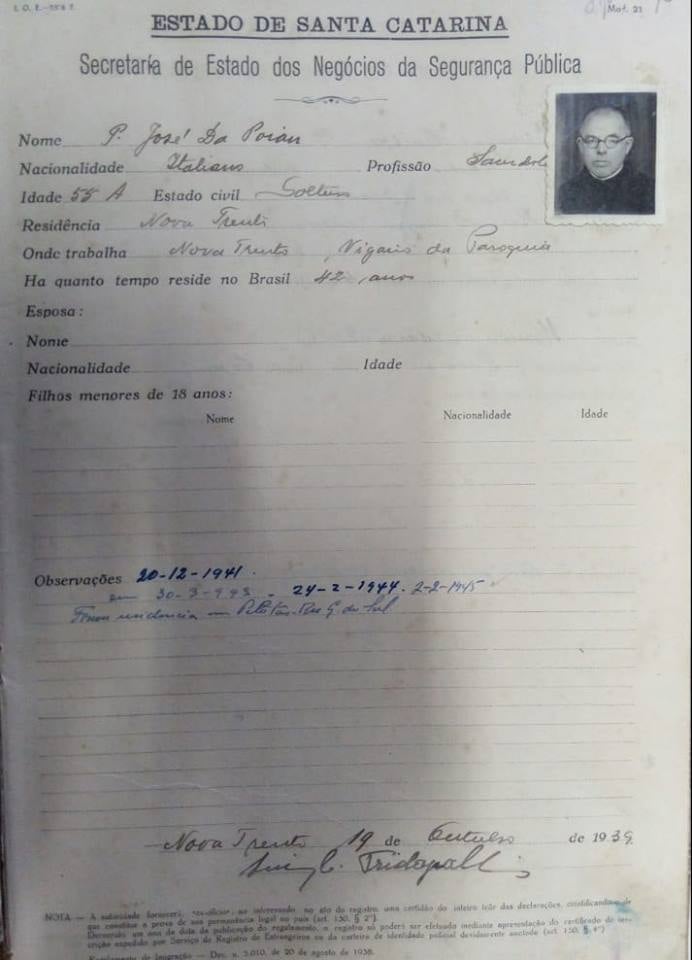 Mat. 21
ESTADO DE SANTA CATARINA
Secretaría de Estado dos Negócios da Segurança Pública
Nome P. José Da Poian
Nacionalidade Italiano Profissão Sacerdote
Idade 55 A Estado civil Solteiro
Residência Nova Trento
Onde trabalha Nova Trento, Vigario da Paroquia
Ha quanto tempo reside no Brasil 42 anos
Esposa:
Nome
Nacionalidade Idade
Filhos menores de 18 anos:
Nome Nacionalidade Idade
Observações 20-12-1941.
em 30-3-943 - 24-2-1944. 2-2-1945
residencia em Pelotas-Rio G. do Sul
Nova Trento 19 de Outubro de 1939
Tridapalli
NOTA — A autoridade fornecerá, "ex-officio", ao interessado, no ato do registro, uma certidão do inteiro teôr das declarações, cientificando-o de
que constitue a prova de sua permanência legal no país (art. 150, § 2°).
Decorrido um ano da data da publicação do regulamento, o registro só poderá ser efetuado mediante apresentação do certificado de ins-
crição expedido por Serviço de Registro de Estrangeiros ou da carteira de identidade policial devidamente anotada (art. 150, § 4°)
Regulamento de Imigração — Dec. n. 3.010, de 20 de agosto de 1938.